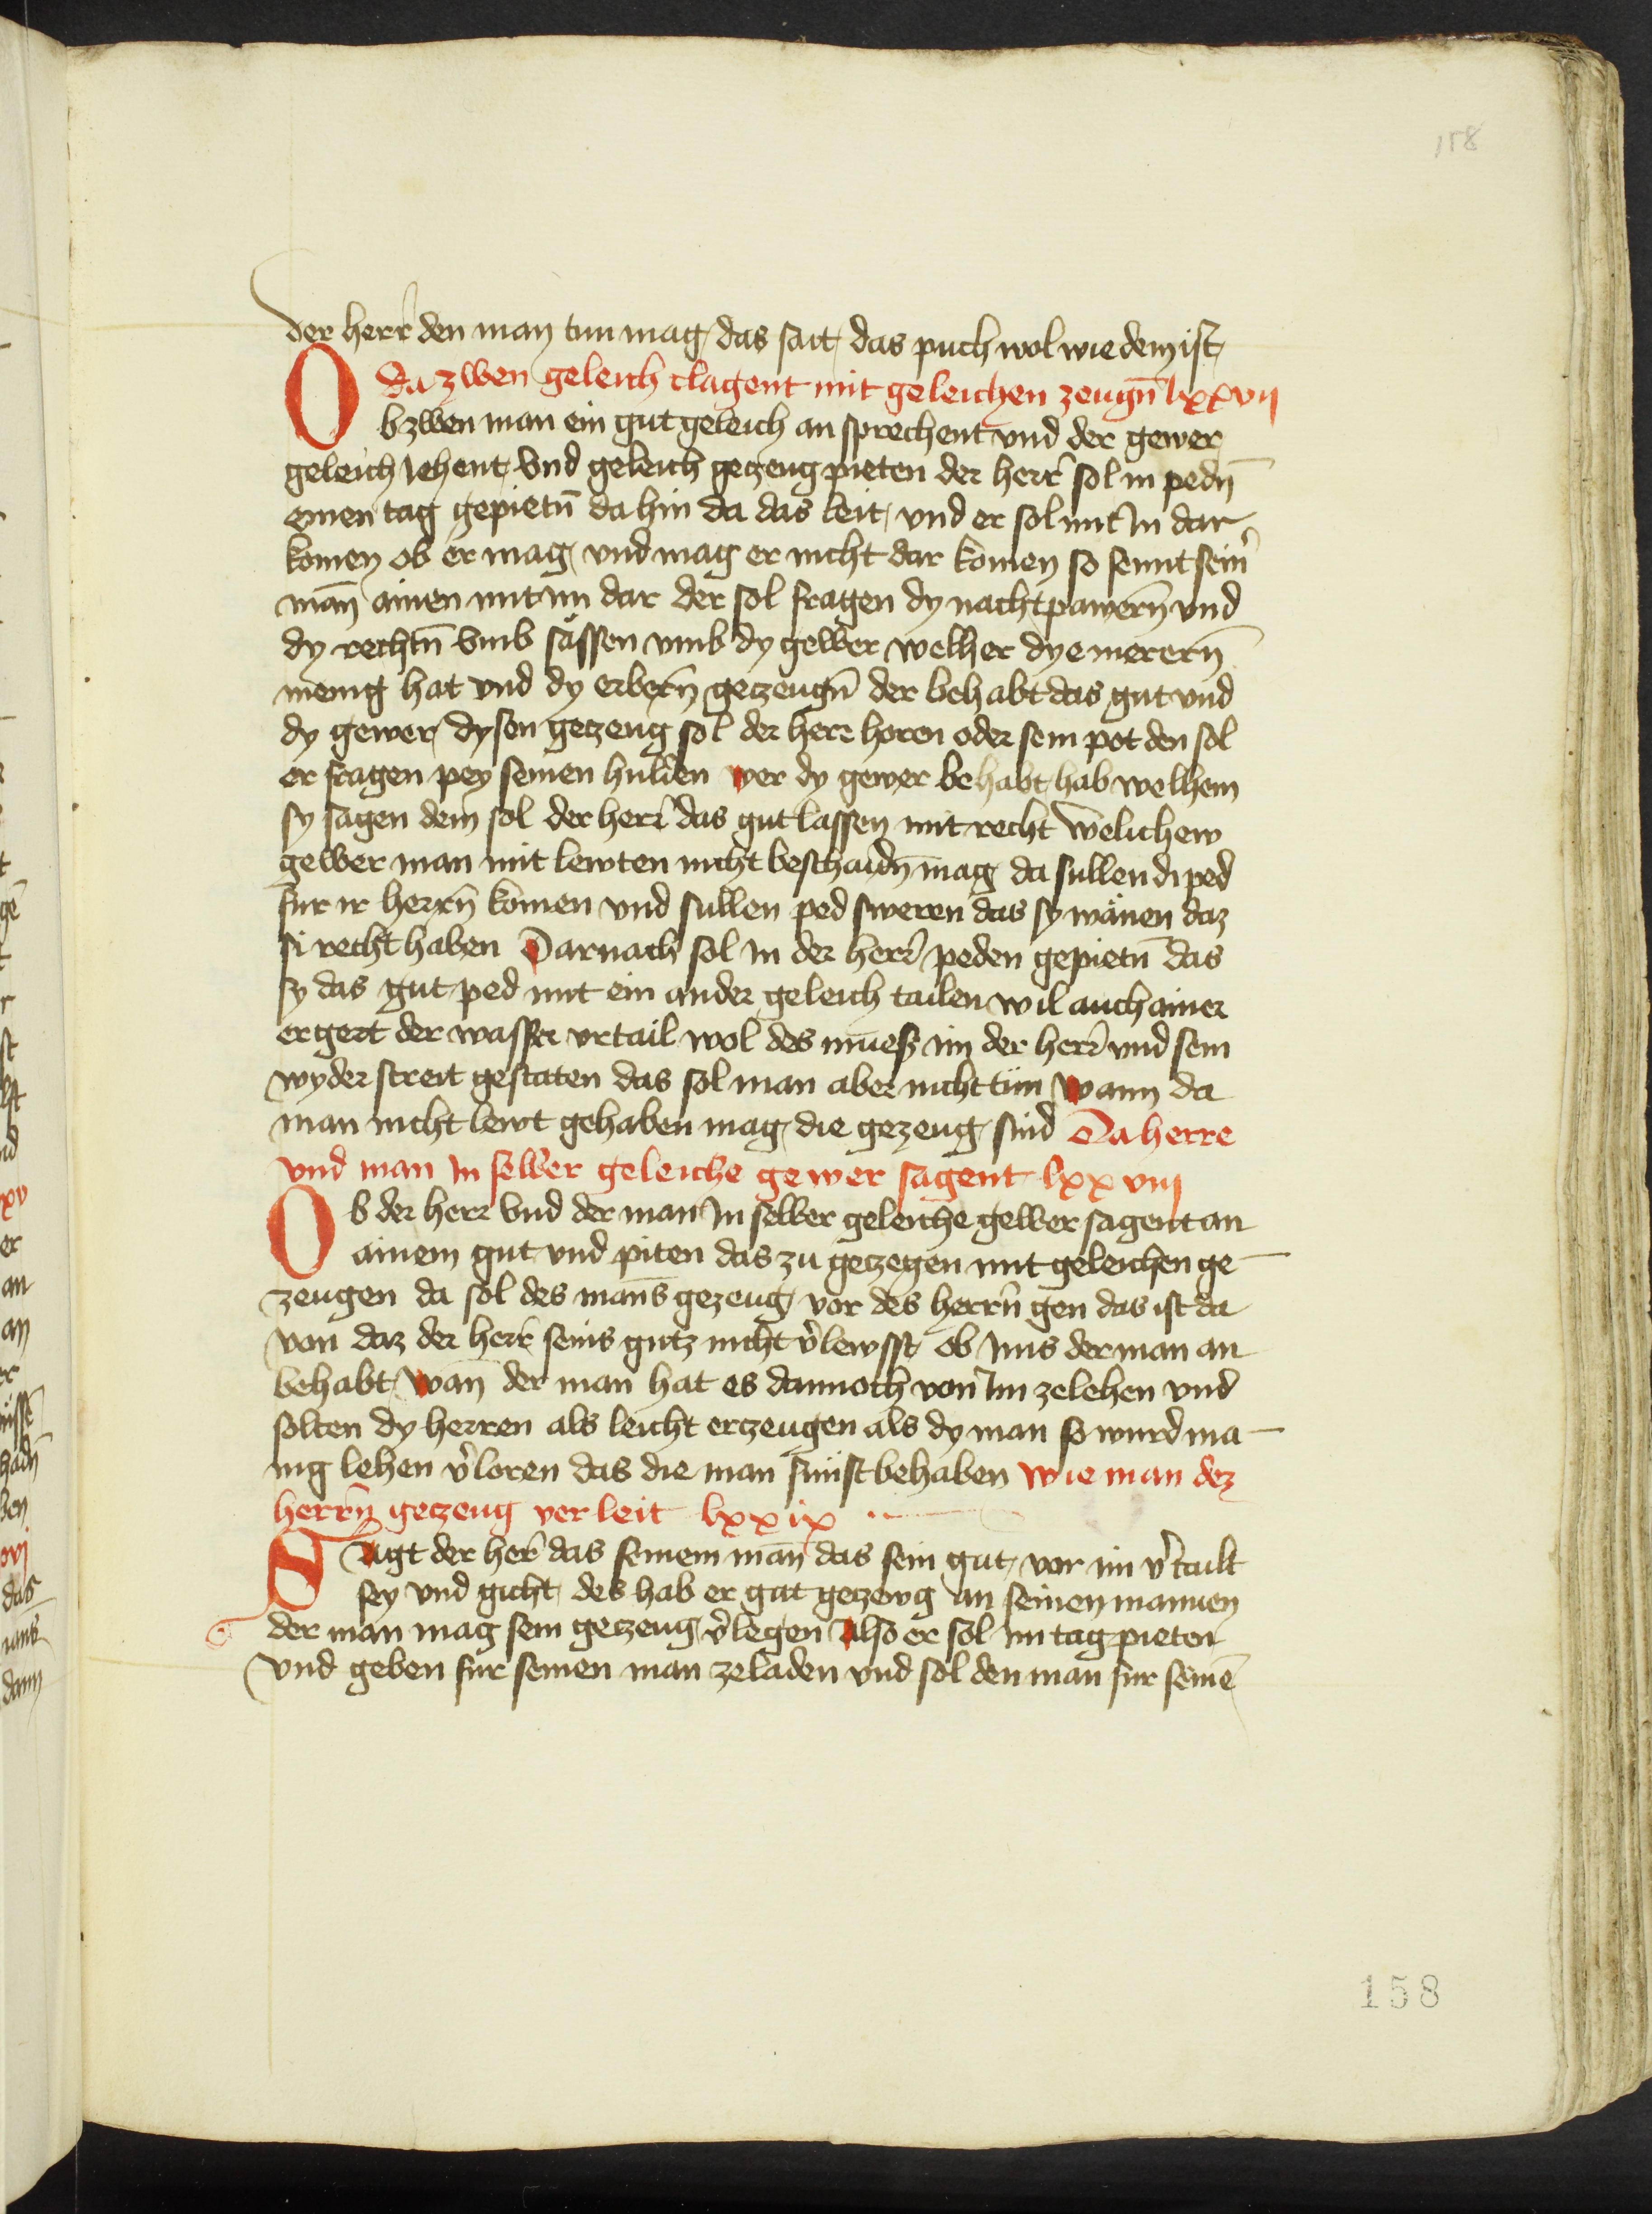 158
der herr den man tun mag das sait das puch wol wie dem ist
da zwen geleich clagent mit geleichen zeugn̄ lxxvij
Ob zwen man ein gut geleich an sprechent vnd der gewer
geleich Iehent vnd geleich geczeug pieten der herr sol in pedn̄
einen tag gepietn̄ da hin da das leit vnd er sol mit In dar
komen ob er mag vnd mag er nicht dar komen so sennt sein̄
man̄ ainen mit im dar der sol fragen dy nachtpawern̄ vnd
dy rechtn̄ vmb sässen vmb dy gewer welher dye merern̄
menig hat vnd dy erbern̄ geczeugn̄ der behabt das gut vnd
dy gewer dysen geczeug sol der herr horen oder sein pot den sol
er fragen pey seinen hulden wer dy gewer behabt hab welhem
sy sagen dem sol der herr das gut lassen mit recht welichew
gewer man mit lewten nicht beschaidn̄ mag da sullen di ped
fur ir herrn̄ komen vnd sullen ped sweren das sy wänen daz
si recht haben Darnach sol in der herr peden gepietn̄ das
sy das gut ped mit ein ander geleich tailen wil auch ainer
er gert der wasser vrtail wol des muesz im der herr vnd sein
wyder streit gestaten das sol man aber nicht tun wann da
man nicht lewt gehaben mag die gezeug sind Da herre
vnd man In selber geleiche gewer sagent lxxviij
Ob der herr vnd der man In selber geleiche gewer sagent an
ainem gut vnd piten das zu geczegen mit geleichen ge-
zeugen da sol des man̄s gezeug vor des herrn̄ gen das ist da
von daz der herr seins gutz nicht v̾lewsst ob Ims der man an
behabt wan̄ der man hat es dannoch von Im zelehen vnd
solten dy herren als leicht erczeugen als dy man so wurd ma-
nig lehen v̾loren das die man sunst behaben wie man dez
herrn̄ geczeug verleit lxxix
Sagt der herr das seinem man̄ das sein gut vor im v̾tailt
sey vnd gicht des hab er gut geczewg an seinen mannen
der man mag sein geczeug v̾legen Also er sol im tag pieten
vnd geben fur seinen man zeladen vnd sol den man fur seinē
158